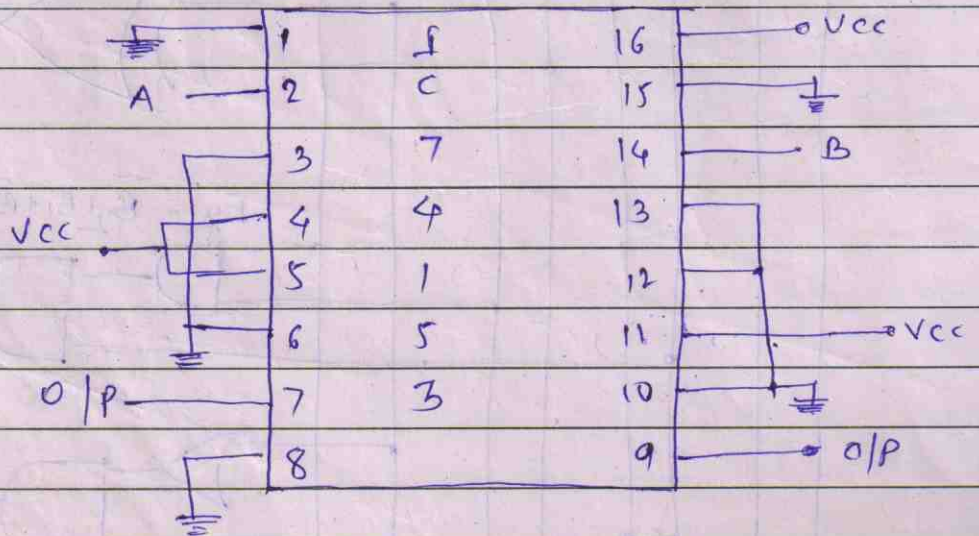 1 I 16 VCC
A 2 C 15
3 7 14 B
4 4 13
VCC 5 1 12
6 5 11 VCC
O/P 7 3 10
8 9 O/P